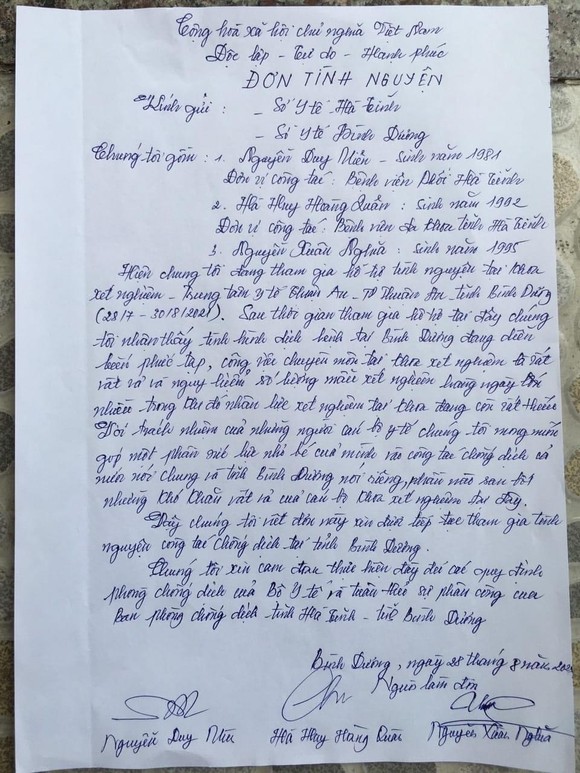 Cộng hoà xã hội chủ nghĩa Việt Nam
Độc lập - Tự do - Hạnh phúc
ĐƠN TÌNH NGUYỆN
Kính gửi : - Sở Y tế Hà Tĩnh
- Sở Y tế Bình Dương
Chúng tôi gồm : 1. Nguyễn Duy - Sinh năm 1981
Đơn vị công tác : Bệnh viện Phổi Hà Tĩnh
2. Hà Huy Hoàng Quân : sinh năm 1992
Đơn vị công tác : Bệnh viện đa khoa tỉnh Hà Tĩnh
3. Nguyễn Xuân Nghĩa : sinh năm 1995
Hiện chúng tôi đang tham gia hỗ trợ tình nguyện tại khoa
xét nghiệm - Trung tâm y tế Thuận An - TP Thuận An - tỉnh Bình Dương
(28/7 - 30/8/2021). Sau thời gian tham gia hỗ trợ tại đây chúng
tôi nhận thấy tình hình dịch bệnh tại Bình Dương đang diễn
biến phức tạp, công việc chuyên môn tại khoa xét nghiệm là rất
vất vả và nguy hiểm, số lượng mẫu xét nghiệm hàng ngày
nhiều trong khi đó nhân lực xét nghiệm tại khoa đang còn rất thiếu
Với trách nhiệm của những người cán bộ y tế chúng tôi mong muốn
góp một phần nhỏ bé của mình vào công tác chống dịch cả
nước nói chung và tỉnh Bình Dương nói riêng, phần nào san bớt
những khó khăn vất vả của cán bộ khoa xét nghiệm tại đây.
Vậy chúng tôi viết đơn này xin được tiếp tục tham gia tình
nguyện công tác chống dịch tại tỉnh Bình Dương.
Chúng tôi xin cam đoan thực hiện đầy đủ các quy định
phòng chống dịch của Bộ Y tế và tuân theo sự phân công của
Ban phòng chống dịch tỉnh Hà Tĩnh - Bình Dương
Bình Dương, ngày 28 tháng 8 năm
Người làm đơn
Nguyễn Duy Hà Huy Hoàng Quân Nguyễn Xuân Nghĩa